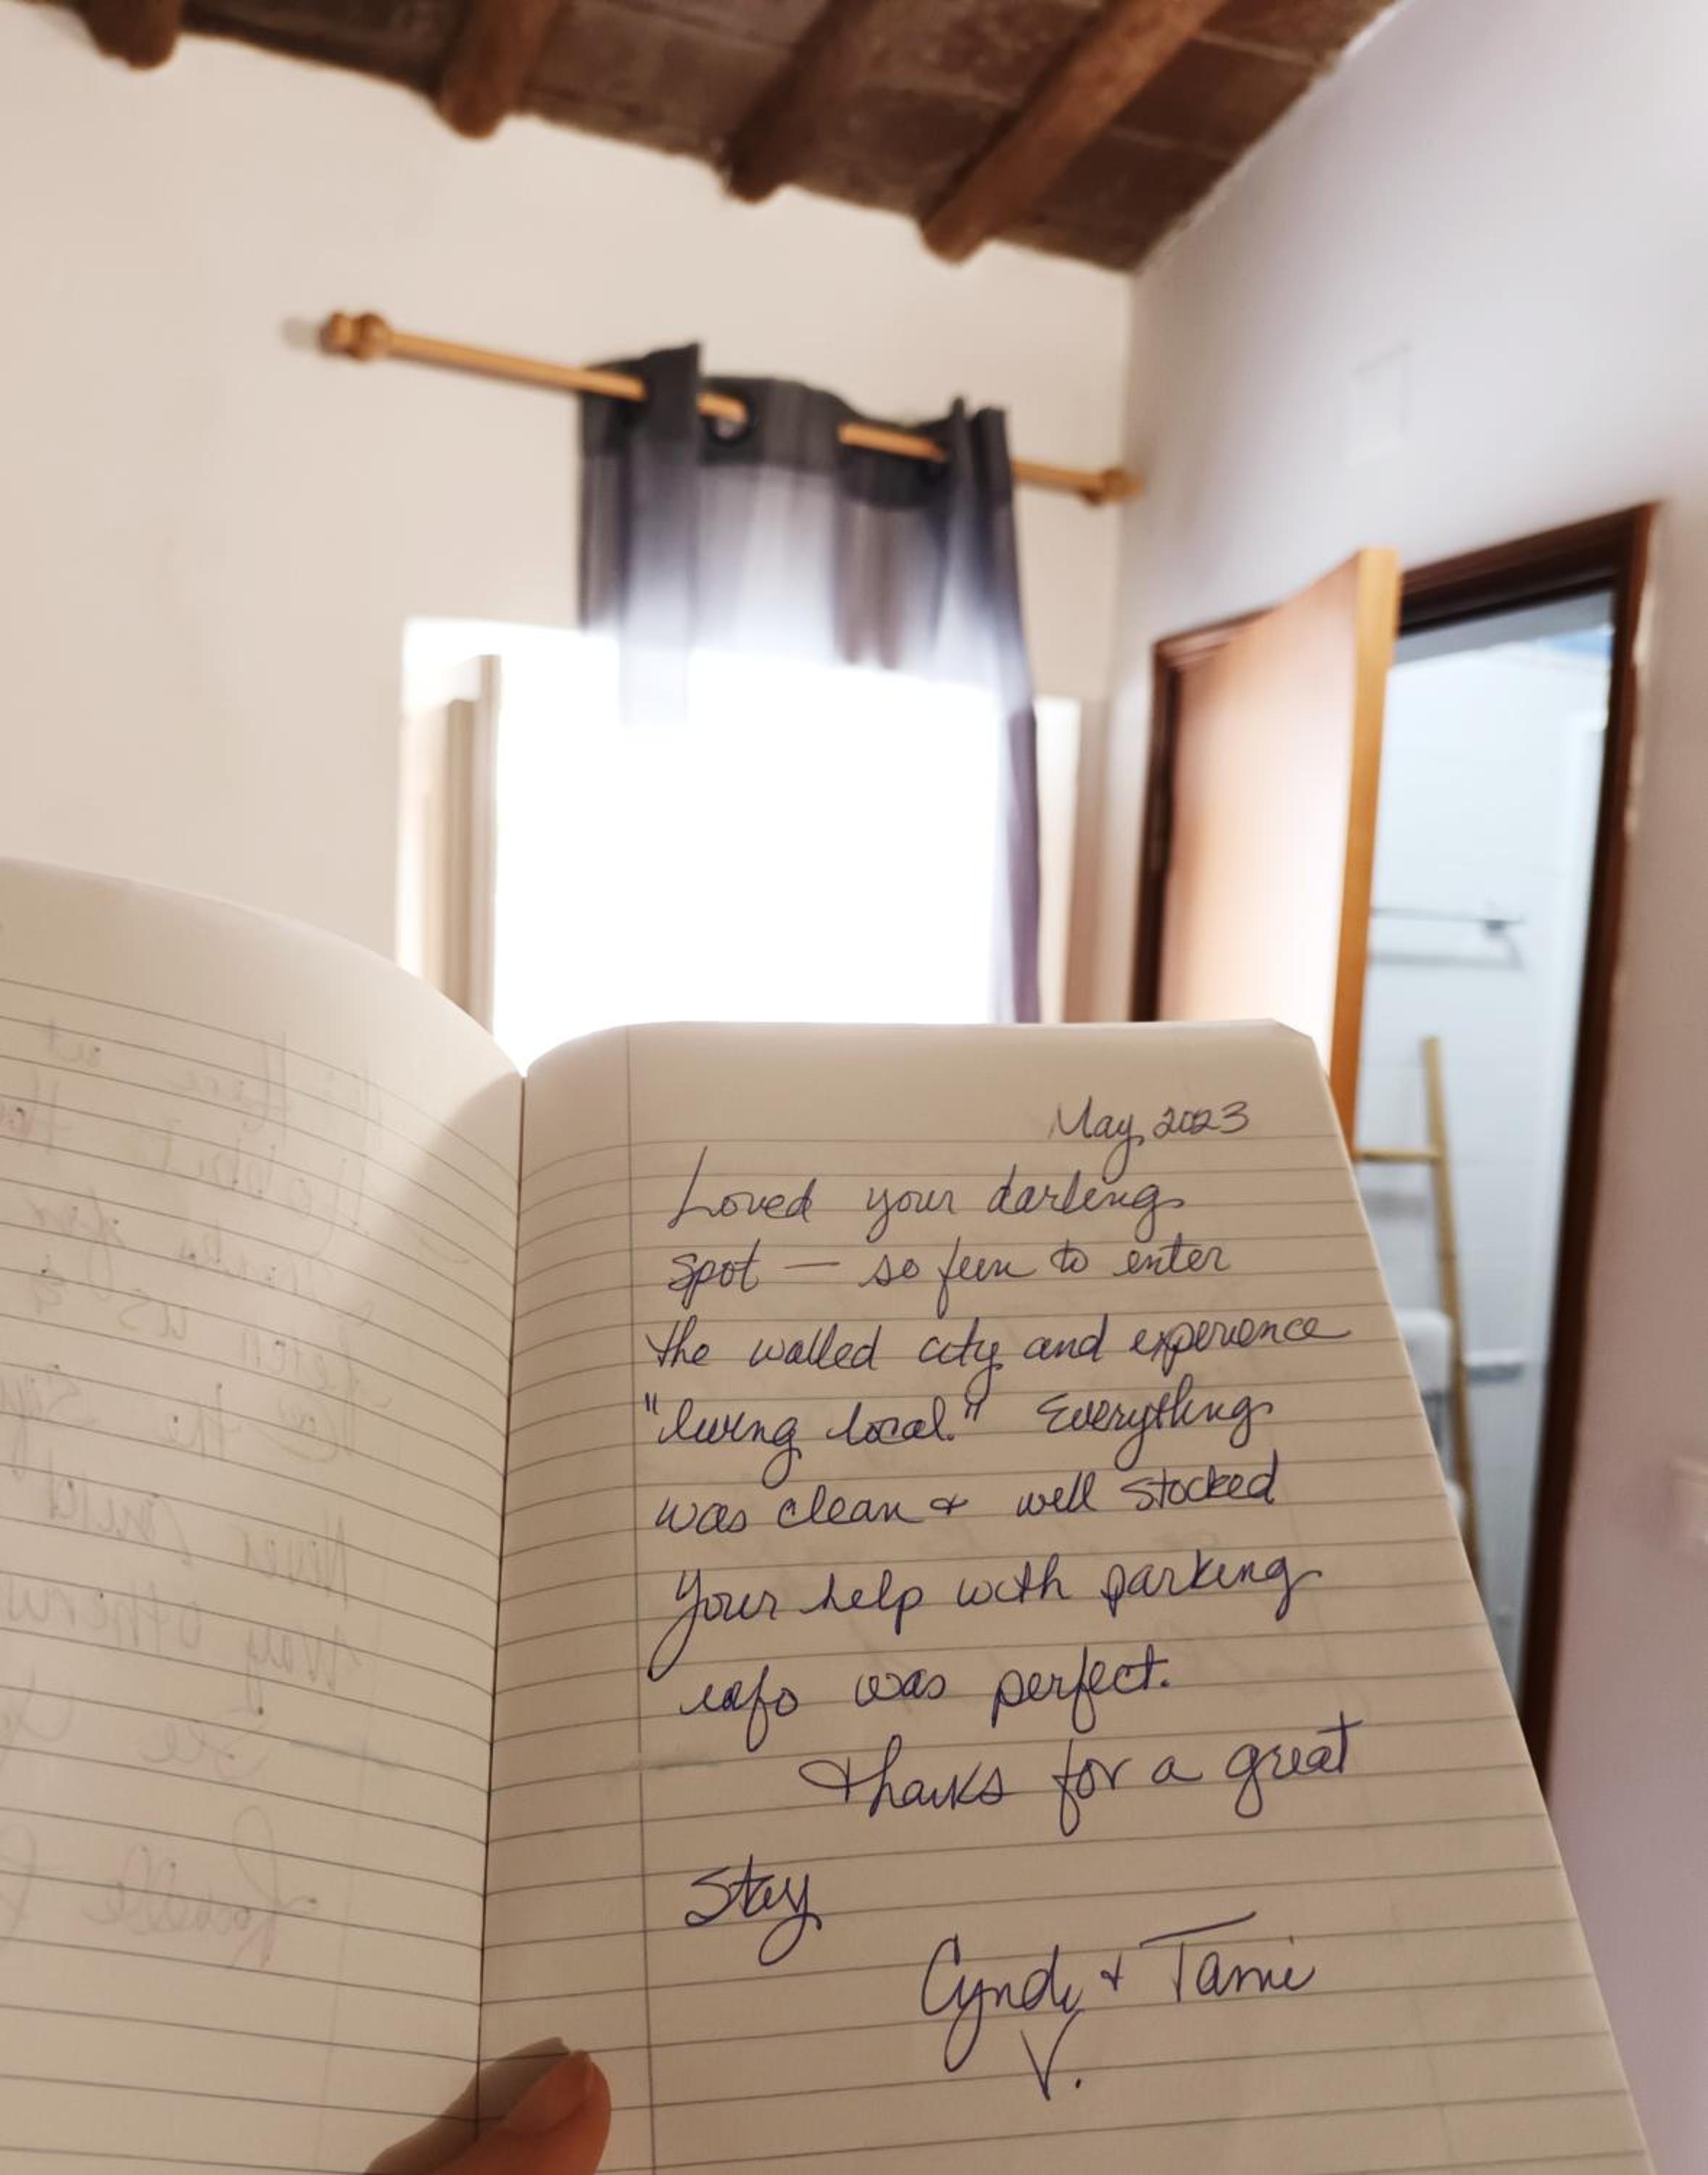 May, 2023
Loved your darling
spot — so fun to enter
the walled city and experience
"living local." Everything
was clean & well stocked
Your help with parking
info was perfect.
Thanks for a great
Stay
Cyndi + Tami
V.